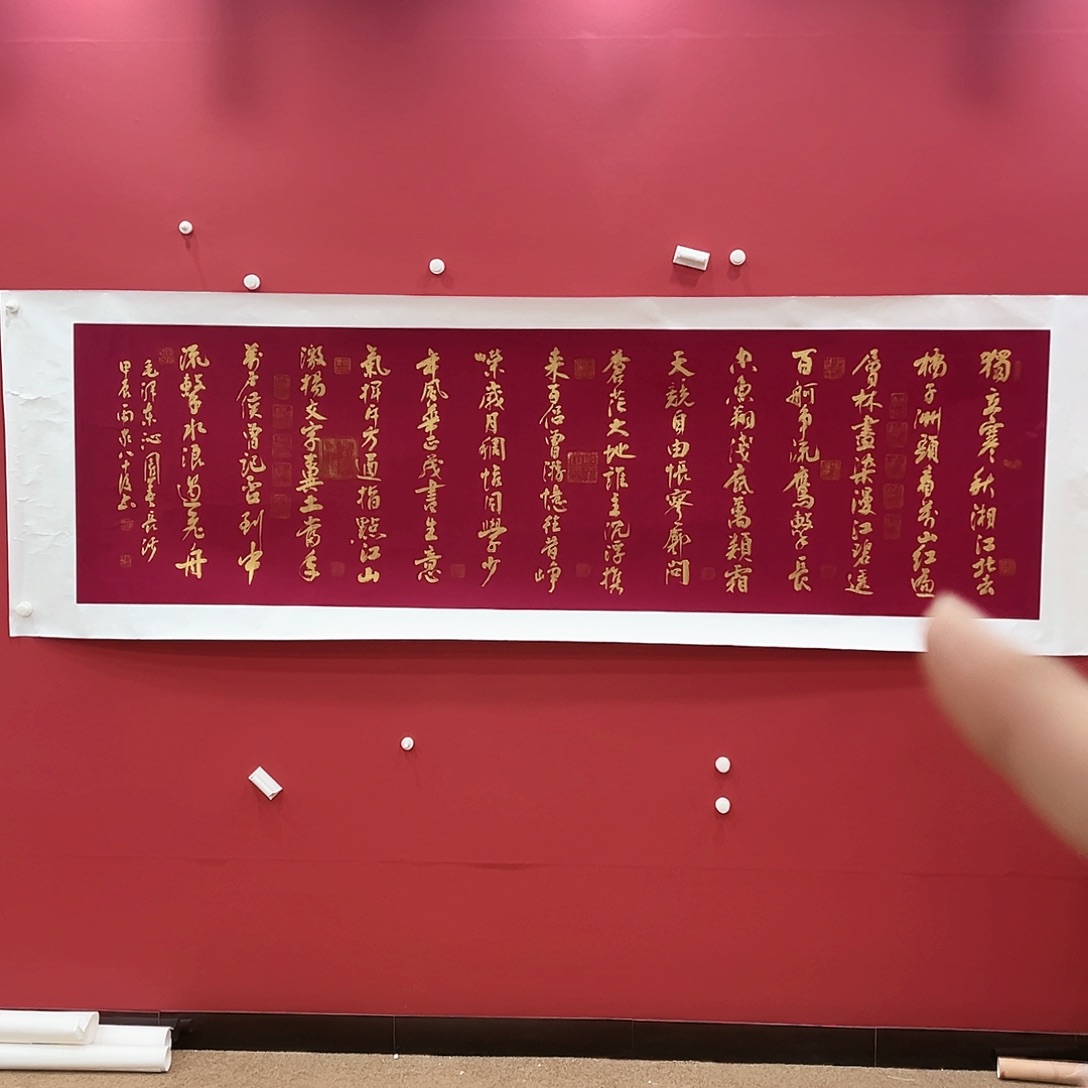 獨立寒秋湘江北去
橘子洲頭看萬山紅遍
層林盡染漫江碧透
百舸爭流鷹擊長
空魚翔淺底萬類霜
天競自由悵寥廓問
蒼茫大地誰主沉浮攜
來百侶曾游憶往昔崢
嶸歲月稠恰同學少
年風華正茂書生意
氣揮斥方遒指點江山
激揚文字糞土當年
萬户侯曾記否到中
流擊水浪遏飛舟
毛澤東沁園春長沙
甲辰尚泉八十後書